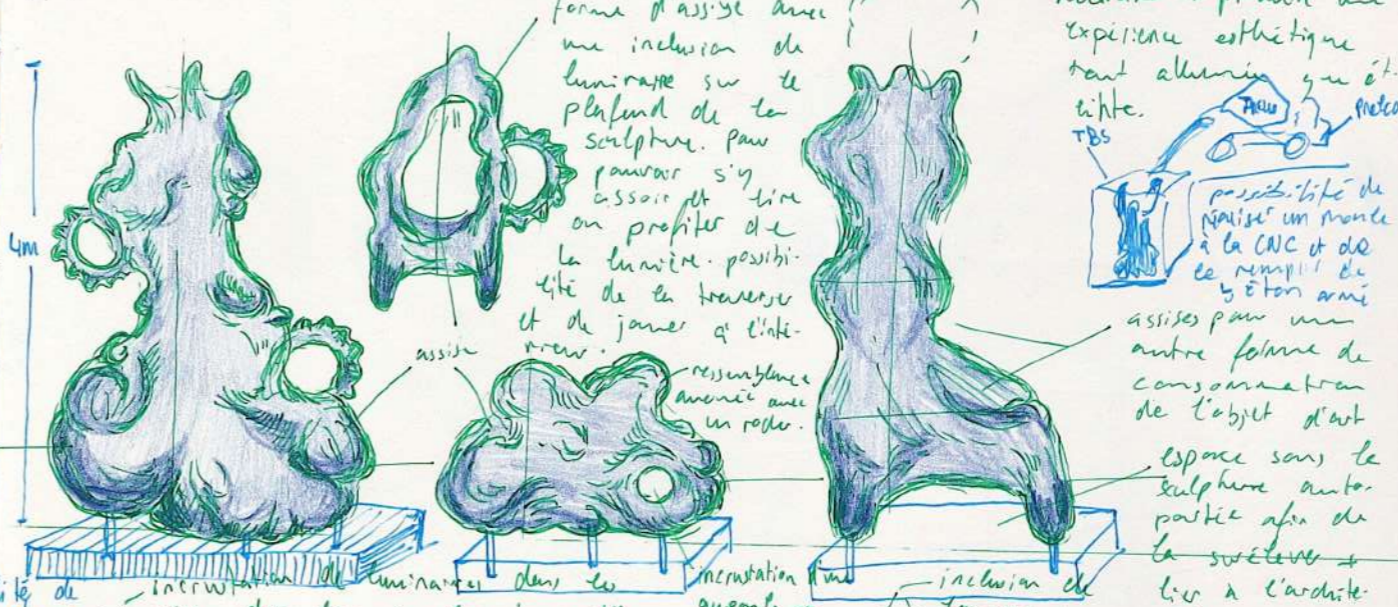 forme d'assise avec
une inclusion de
luminaire sur le
plafond de la
sculpture. pour
pouvoir s'y
assoir et lire
ou profiter de
la lumière. possibi-
lité de la traverser
et de jouer à l'inté-
rieur.
expérience esthétique
tant allumée qu'ét
einte.
TBS
possibilité de
réaliser un moule
à la CNC et de
le remplir de
béton armé
4m
assise
ressemblance
avec
un
assises pour une
autre forme de
consommation
de l'objet d'art
espace sous la
sculpture auto-
portée afin de
la surélever +
lier à l'archite-
ité de
incrustation de luminaires dans la
incrustation d'une
inclusion de